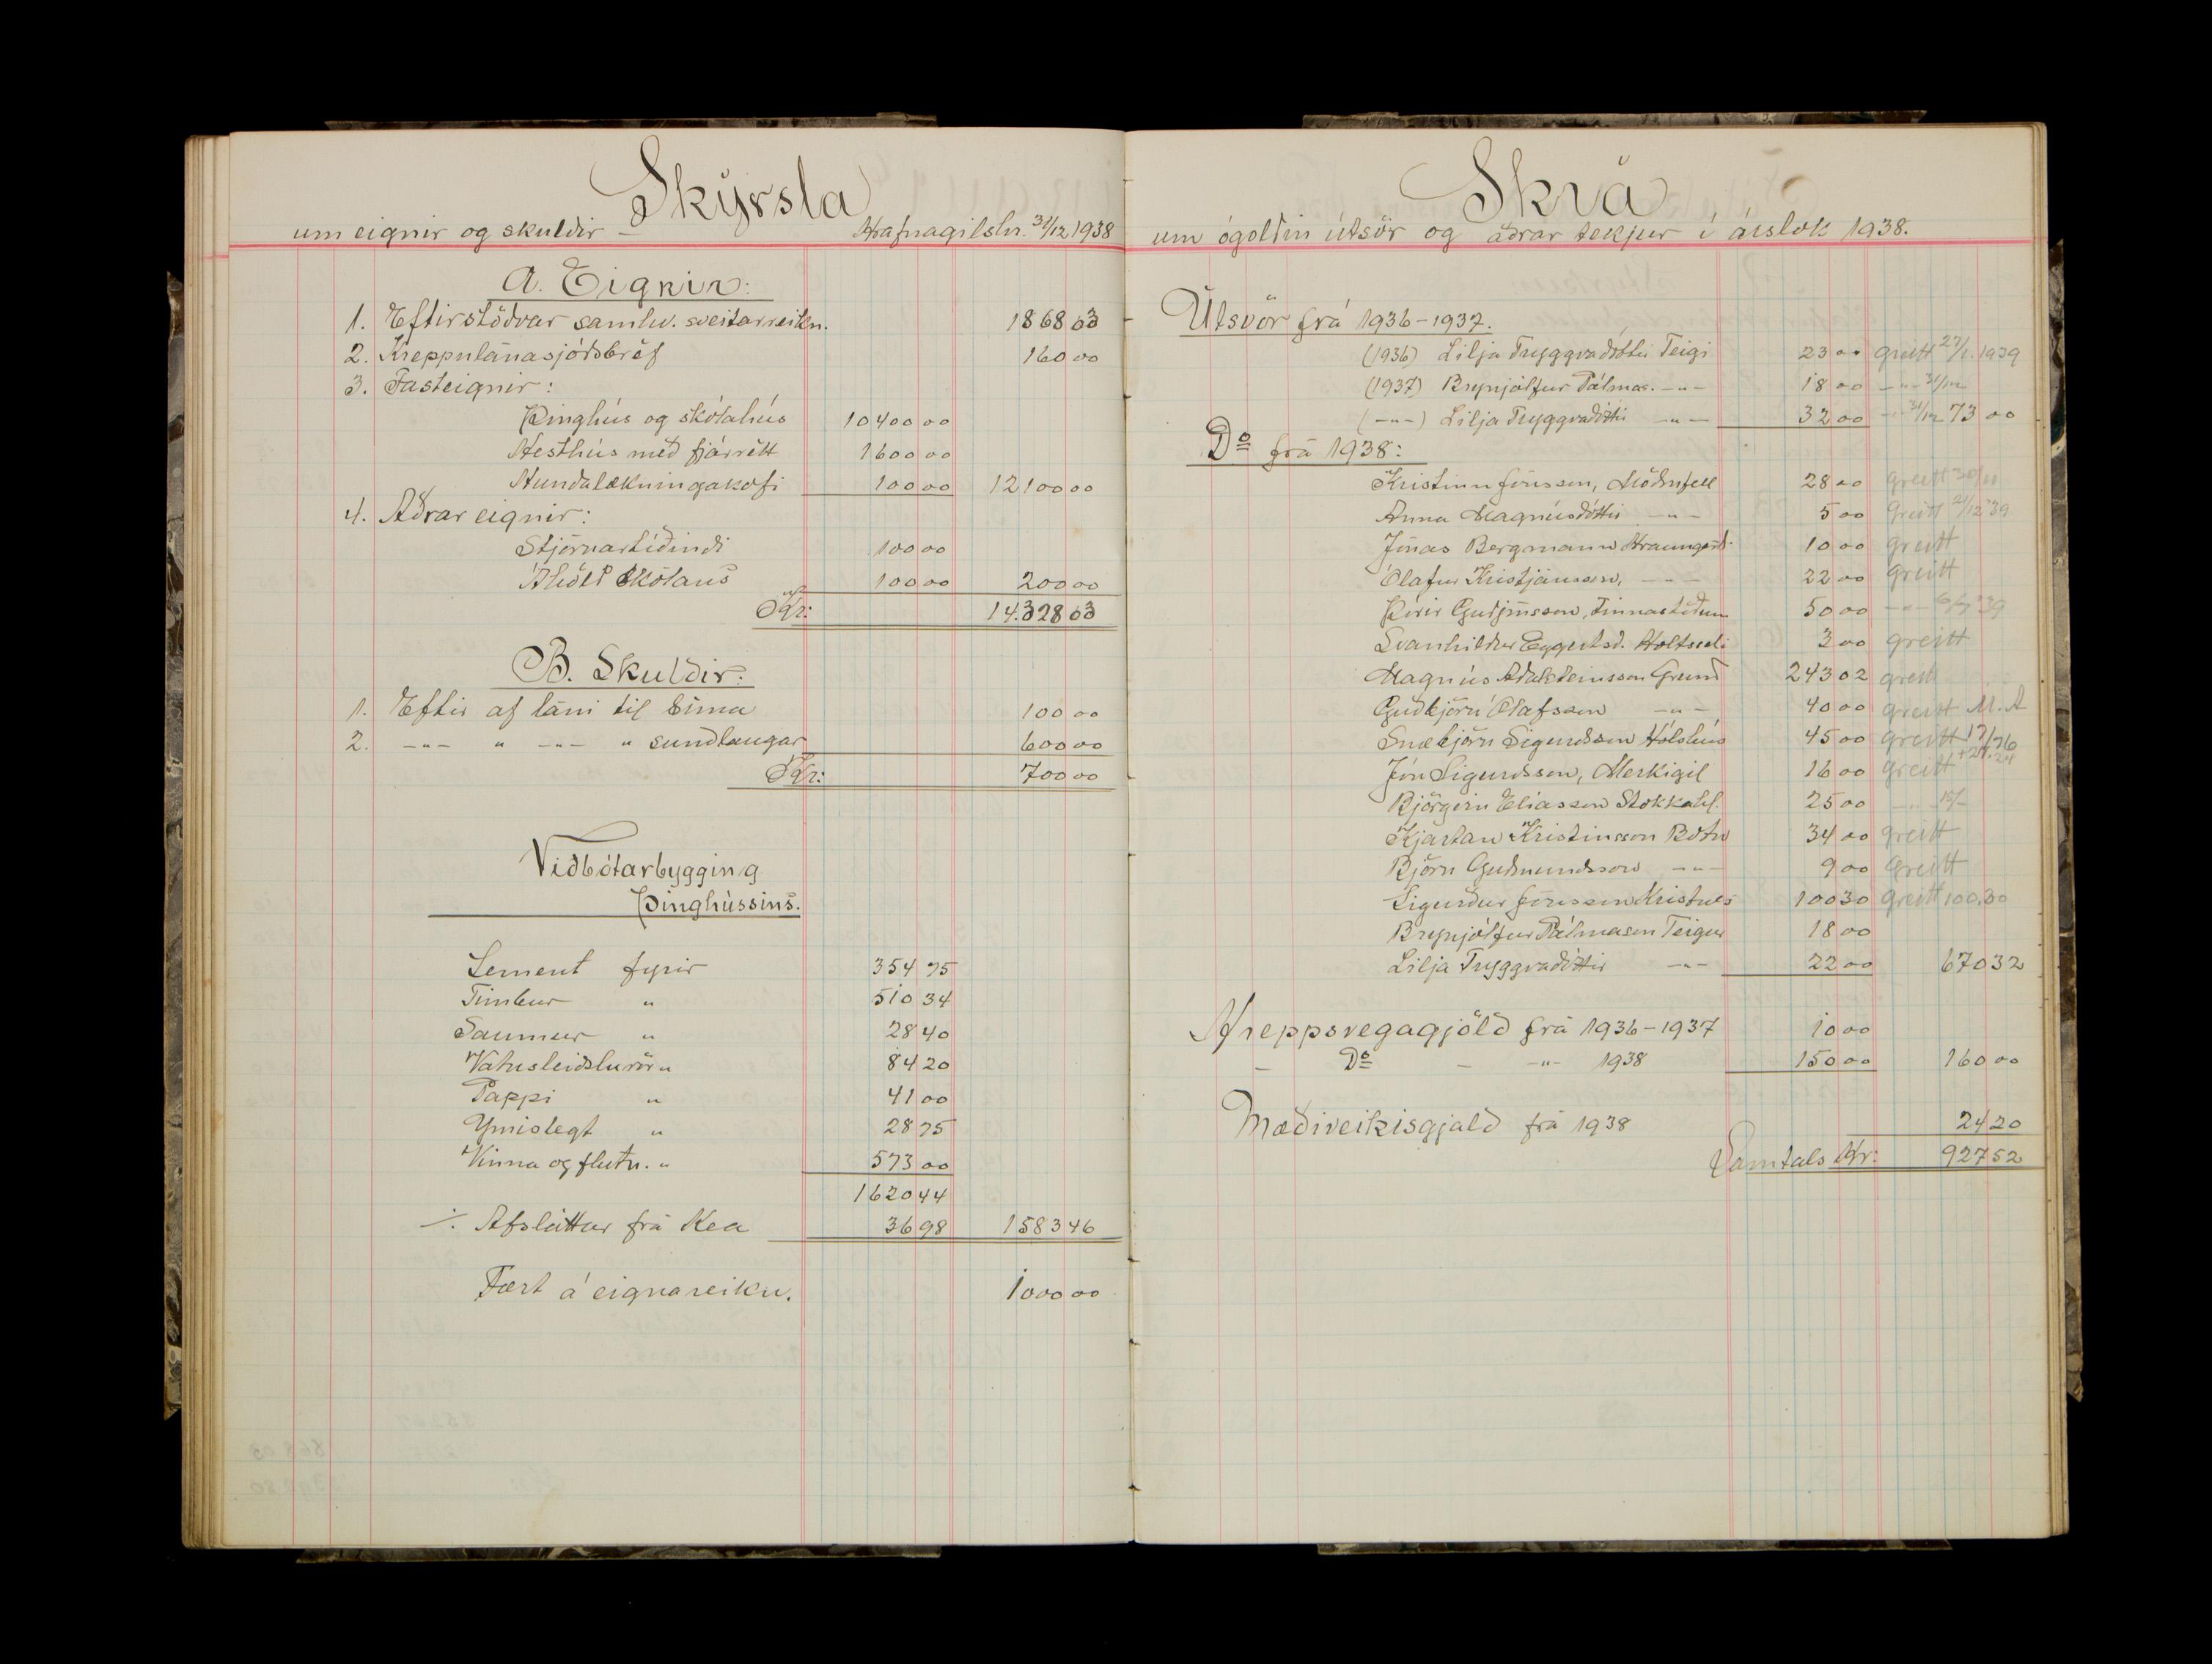 Skýrsla
um eignir og skuldir – Hrafnagilshr. 31/12 1938
A. Eignir:
1. Eftirstöðvar samhv. sveitarreikn. 1868 03
2. Kreppulánasjóðsbréf 160 00
3. Fasteignir:
Þinghús og skólahús 10400 00
Hesthús með fjárrétt 1600 00
Hundalækningakofi 100 00 12100 00
4. Aðrar eignir:
Stjórnartíðindi 100 00
Áhöld skólans 100 00 200 00
Kr: 14.328 03
B. Skuldir:
1. Eftir af láni til síma 100 00
2. –"– " –"– " sundlaugar 600 00
Kr: 700 00
Viðbótarbygging
Þinghússins.
Sement fyrir 354 75
Timbur " 510 34
Saumur " 28 40
Vatnsleiðslurör " 84 20
Pappi " 41 00
Ýmislegt " 28 75
Vinna og flutn. " 573 00
1620 44
÷ Afsláttur frá Kea 36 98 1583 46
Fært á eignareikn. 1000 00
Skrá
um ógoldin útsvör og aðrar tekjur í árslok 1938.
Útsvör frá 1936–1937.
(1936) Lilja Tryggvadóttir Teigi 23 00 greitt 27/1. 1939
(1937) Brynjólfur Pálmas. –"– 18 00 –"– 31/12
(–"–) Lilja Tryggvadóttir –"– 32 00 –"– 31/12 73 00
Do frá 1938:
Kristinn Jónsson, Möðrufell 28 00 greitt 30/11
Anna Magnúsdóttir –"– 5 00 greitt 21/12 39
Jónas Bergmann Hraungerði 10 00 greitt
Ólafur Kristjánsson, –"– 22 00 greitt
Þórir Guðjónsson, Finnastöðum 50 00 –"– 39
Svanhildur Eggertsd. Holtseli 3 00 greitt
Magnús Aðalsteinsson Grund 243 02 greitt
Guðbjörn Ólafsson –"– 40 00 greitt M. A
Snæbjörn Sigurðsson Hólshús 45 00 greitt
Jón Sigurðsson, Merkigil 16 00 greitt
Björgvin Elíasson Stokkahl. 25 00
Kjartan Kristinsson Botn 34 00 greitt
Björn Guðmundsson –"– 9 00 greitt
Sigurður Jónsson Kristnes 100 30 greitt 100.30
Brynjólfur Pálmason Teigur 18 00
Lilja Tryggvadóttir –"– 22 00 670 32
Hreppsvegagjöld frá 1936–1937 10 00
– Do – –"– 1938 150 00 160 00
Mæðiveikisgjald frá 1938 24 20
Samtals Kr: 927 52